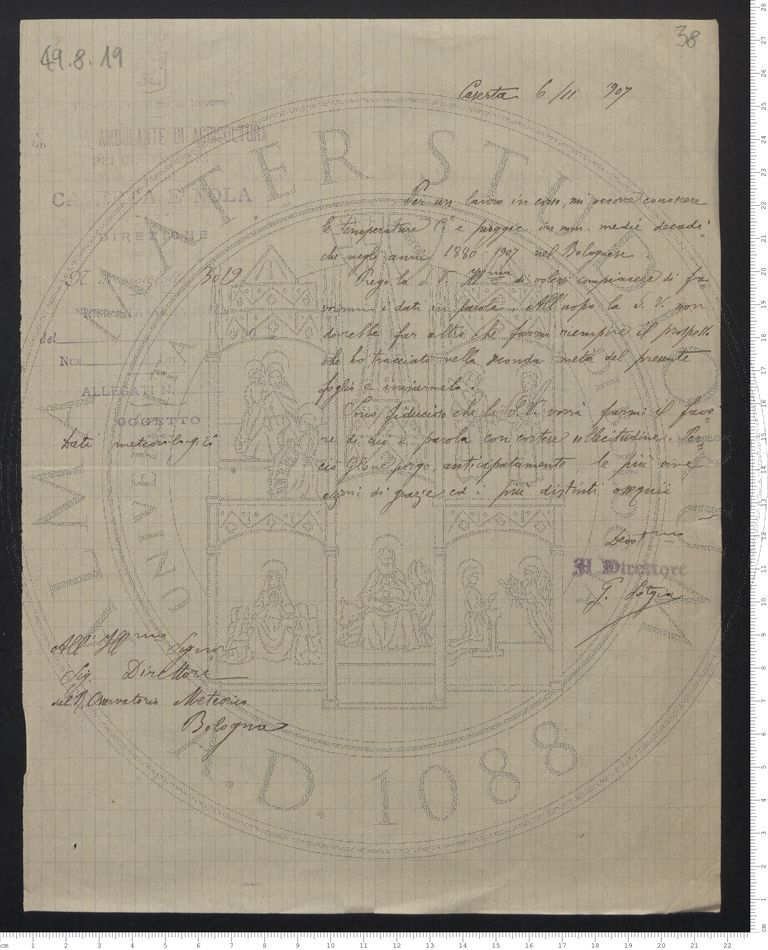 49.8.19
38
Caserta 6/11 907
AMBULANTE DI AGRICOLTURA
CASERTA E NOLA
DIREZIONE
N. 3019
del
NUM.
ALLEGATI N.
OGGETTO
Dati meteorologici
Per un lavoro in corso, mi occorre conoscere
le temperature C.° e pioggie in mm. medie decadi-
che negli anni 1880-1907 nel Bolognese
Prego la S. V. Ill.ma di volersi compiacere di fa-
vorirmi i dati in parola. All'uopo la S. V. non
dovrebbe far altro che farmi riempire il prospetto
che ho tracciato nella seconda metà del presente
foglio e inviarmelo.
Sono fiducioso che la S. V. vorrà farmi il favo-
re di cui è parola con cortese sollecitudine. Per
ciò Gliene porgo anticipatamente le più vive
azioni di grazie ed i più distinti ossequii
Dev.mo
Il Direttore
G.
All' Ill.mo Signor
Sig. Direttore
del R. Osservatorio Meteorico
Bologna
ALMA MATER STUDIORUM
A.D. 1088